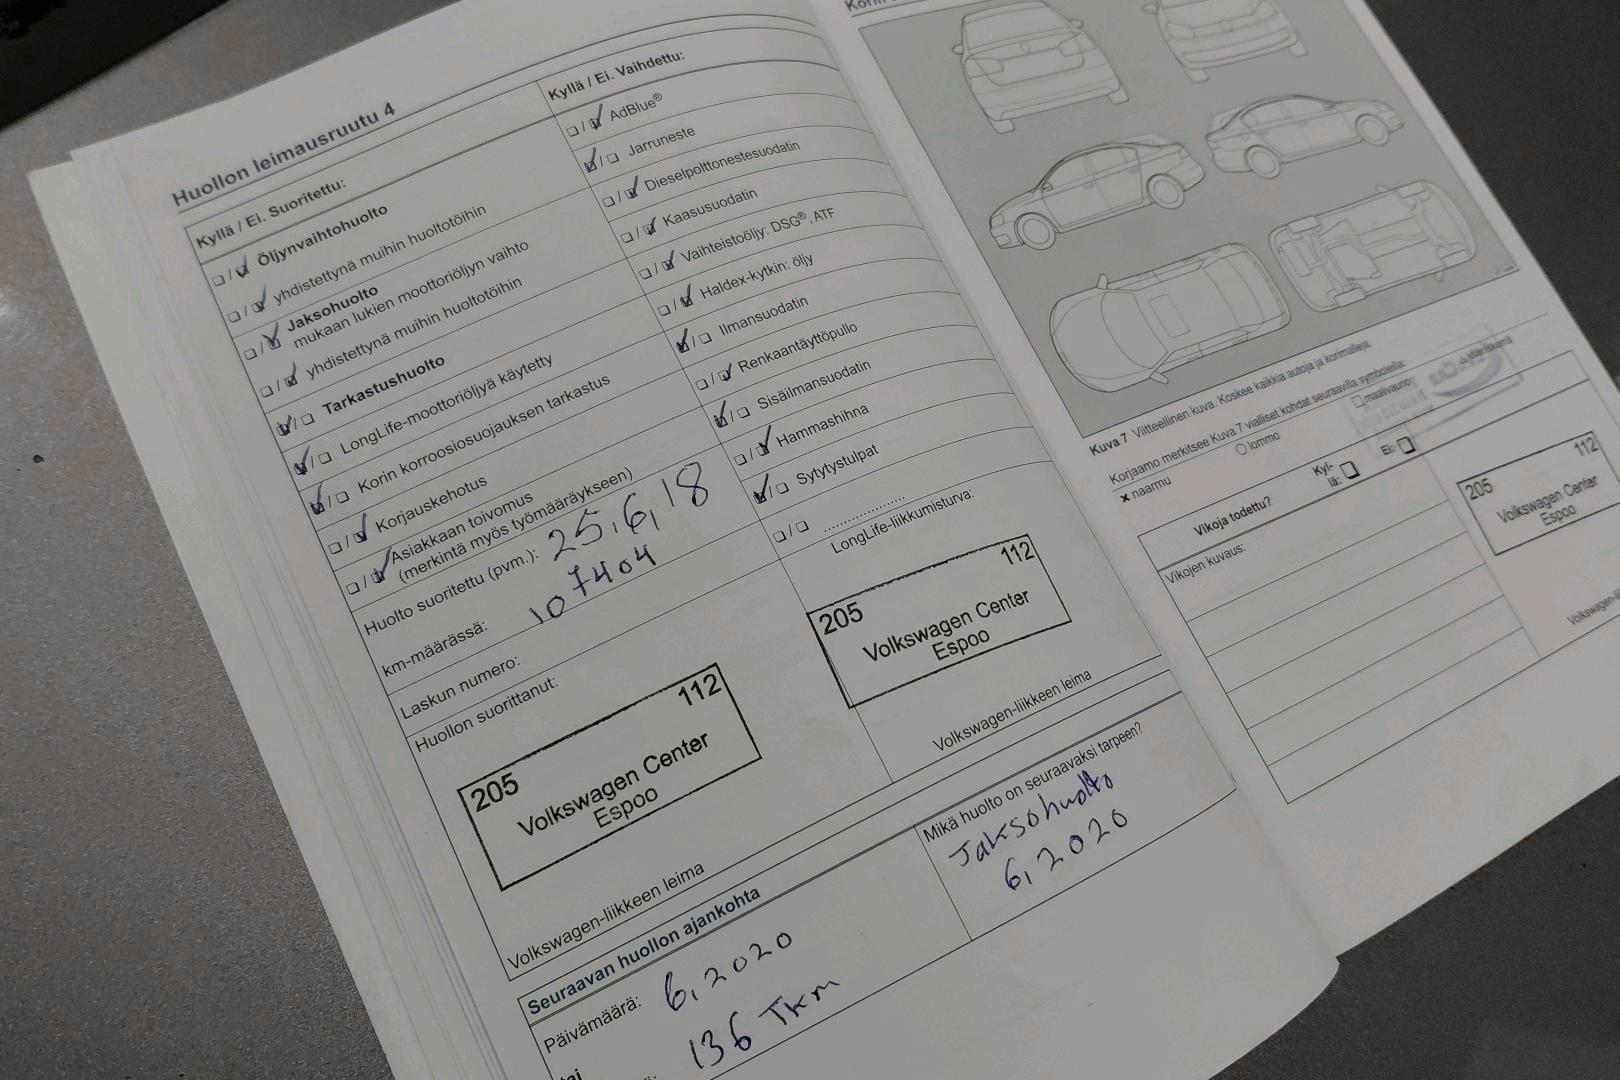 Huollon leimausruutu 4
Kyllä / Ei. Suoritettu:
Öljynvaihtohuolto
yhdistettynä muihin huoltotöihin
Jaksohuolto
mukaan lukien moottoriöljyn vaihto
yhdistettynä muihin huoltotöihin
Tarkastushuolto
LongLife-moottoriöljyä käytetty
Korin korroosiosuojauksen tarkastus
Korjauskehotus
Asiakkaan toivomus
(merkintä myös työmääräykseen)
Huolto suoritettu (pvm.): 25.6.18
km-määrässä: 107404
Laskun numero:
Huollon suorittanut:
205 112
Volkswagen Center
Espoo
Volkswagen-liikkeen leima
Kyllä / Ei. Vaihdettu:
AdBlue®
Jarruneste
Dieselpolttonestesuodatin
Kaasusuodatin
Vaihteistoöljy: DSG®, ATF
Haldex-kytkin: öljy
Ilmansuodatin
Renkaantäyttöpullo
Sisäilmansuodatin
Hammashihna
Sytytystulpat
LongLife-liikkumisturva:
205 112
Volkswagen Center
Espoo
Volkswagen-liikkeen leima
Seuraavan huollon ajankohta
Päivämäärä: 6.2020
tai
136 Tkm
Mikä huolto on seuraavaksi tarpeen?
Jaksohuolto
6.2020
Kuva 7 Viitteellinen kuva. Koskee kaikkia autoja ja korimalleja.
Korjaamo merkitsee Kuva 7 vialliset kohdat seuraavilla symboleilla:
x naarmu lommo maalivaurio
Vikoja todettu? Kyl-
lä: Ei:
Vikojen kuvaus:
205 112
Volkswagen Center
Espoo